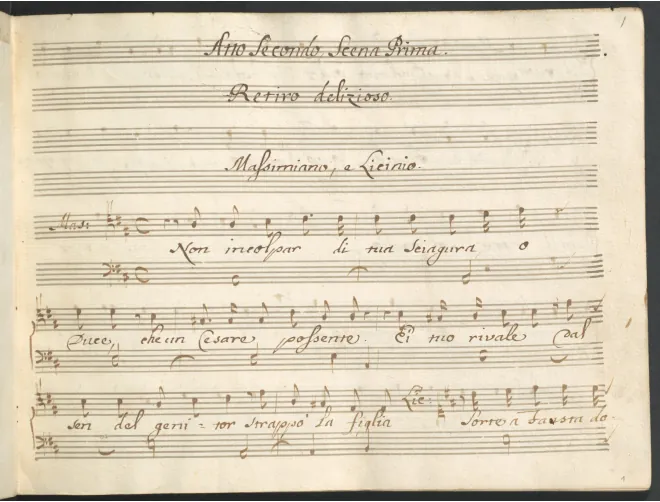 1
Atto Secondo, Scena Prima.
Retiro delizioso.
Massimiano, e Licinio.
Mas:
Non incolpar di tua sciagura o
Duce, che un Cesare possente. Ei tuo rivale Dal
sen del geni-tor strappò la figlia Lic: Sorte a Fausta do-